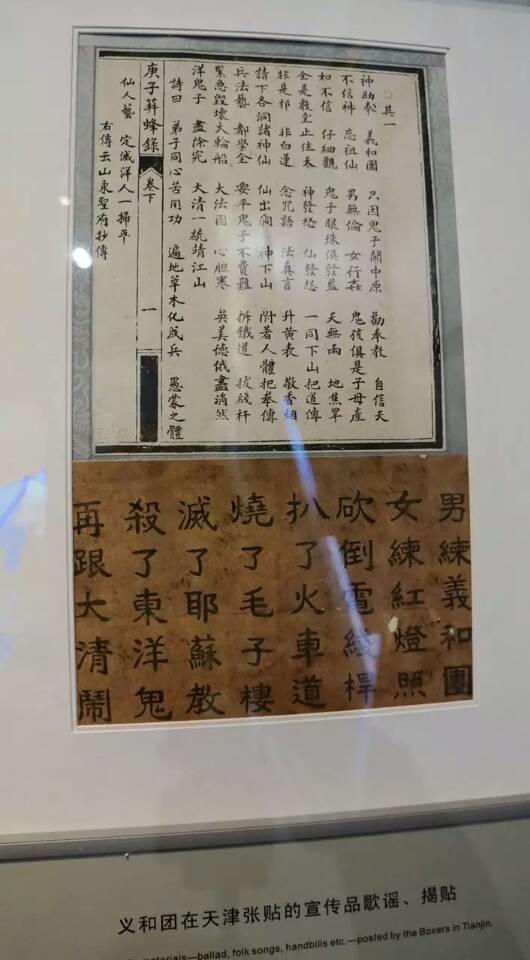 ○其一
神助拳 義和團 只因鬼子鬧中原 勸奉教 自信天
不信神 忘祖仙 男無倫 女行姦 鬼孩俱是子母產
如不信 仔細觀 鬼子眼珠俱發藍 天無雨 地焦旱
全是教堂止住天 神發怒 仙發怒 一同下山把道傳
非是邪 非白蓮 念咒語 法真言 升黃表 敬香烟
請下各洞諸神仙 仙出洞 神下山 附著人體把拳傳
兵法藝 都學全 要平鬼子不費難 拆鐵道 拔綫杆
緊急毀壞大輪船 大法國 心胆寒 英美德俄盡消然
洋鬼子 盡除完 大清一統靖江山
詩曰 弟子同心苦用功 遍地草木化成兵 愚蒙之體
庚子荓蜂錄 卷下 一
仙人藝 定滅洋人一掃平
右傳云山東聖府抄傳
男練義和團
女練紅燈照
砍倒電綫桿
扒了火車道
燒了毛子樓
滅了耶蘇教
殺了東洋鬼
再跟大清鬧
义和团在天津张贴的宣传品歌谣、揭贴
materials—ballad, folk songs, handbills etc.—posted by the Boxers in Tianjin.